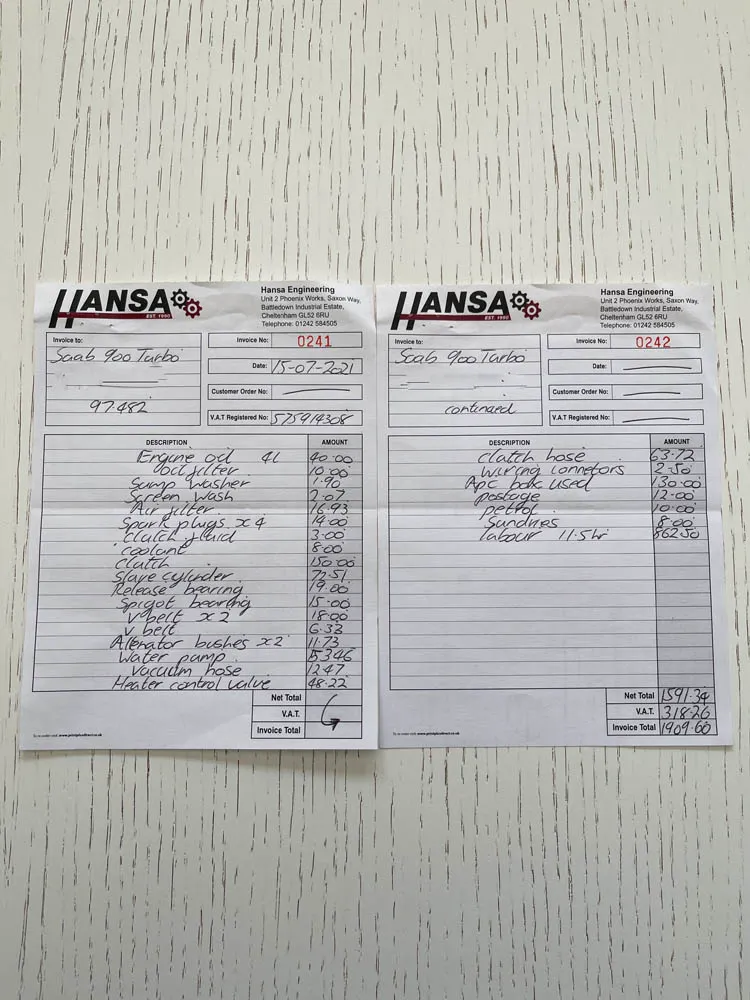 HANSA
EST. 1960
Hansa Engineering
Unit 2 Phoenix Works, Saxon Way,
Battledown Industrial Estate,
Cheltenham GL52 6RU
Telephone: 01242 584505
Invoice to:
Saab 900 Turbo
97.482
Invoice No: 0241
Date: 15-07-2021
Customer Order No:
V.A.T Registered No: 575914308
DESCRIPTION AMOUNT
Engine oil 4L 40.00
oil filter 10.00
Sump washer 1.90
Screen Wash 2.07
Air filter 16.93
Spark plugs x4 19.00
Clutch fluid 3.00
coolant 8.00
Clutch 150.00
Slave cylinder 72.51
Release bearing 19.00
Spigot bearing 15.00
V belt x2 18.00
V belt 6.33
Alterator bushes x2 11.73
Water pump 53.46
Vacuum hose 12.47
Heater control valve 48.22
Net Total
V.A.T.
Invoice Total
To re-order visit: www.printplusdirect.co.uk
HANSA
EST. 1960
Hansa Engineering
Unit 2 Phoenix Works, Saxon Way,
Battledown Industrial Estate,
Cheltenham GL52 6RU
Telephone: 01242 584505
Invoice to:
Saab 900 Turbo
continued
Invoice No: 0242
Date:
Customer Order No:
V.A.T Registered No:
DESCRIPTION AMOUNT
Clutch hose 63.72
wiring connetors 2.50
Apc box used 130.00
postage 12.00
petrol 10.00
Sundries 8.00
labour 11.5hr 862.50
Net Total 1591.34
V.A.T. 318.26
Invoice Total 1909.60